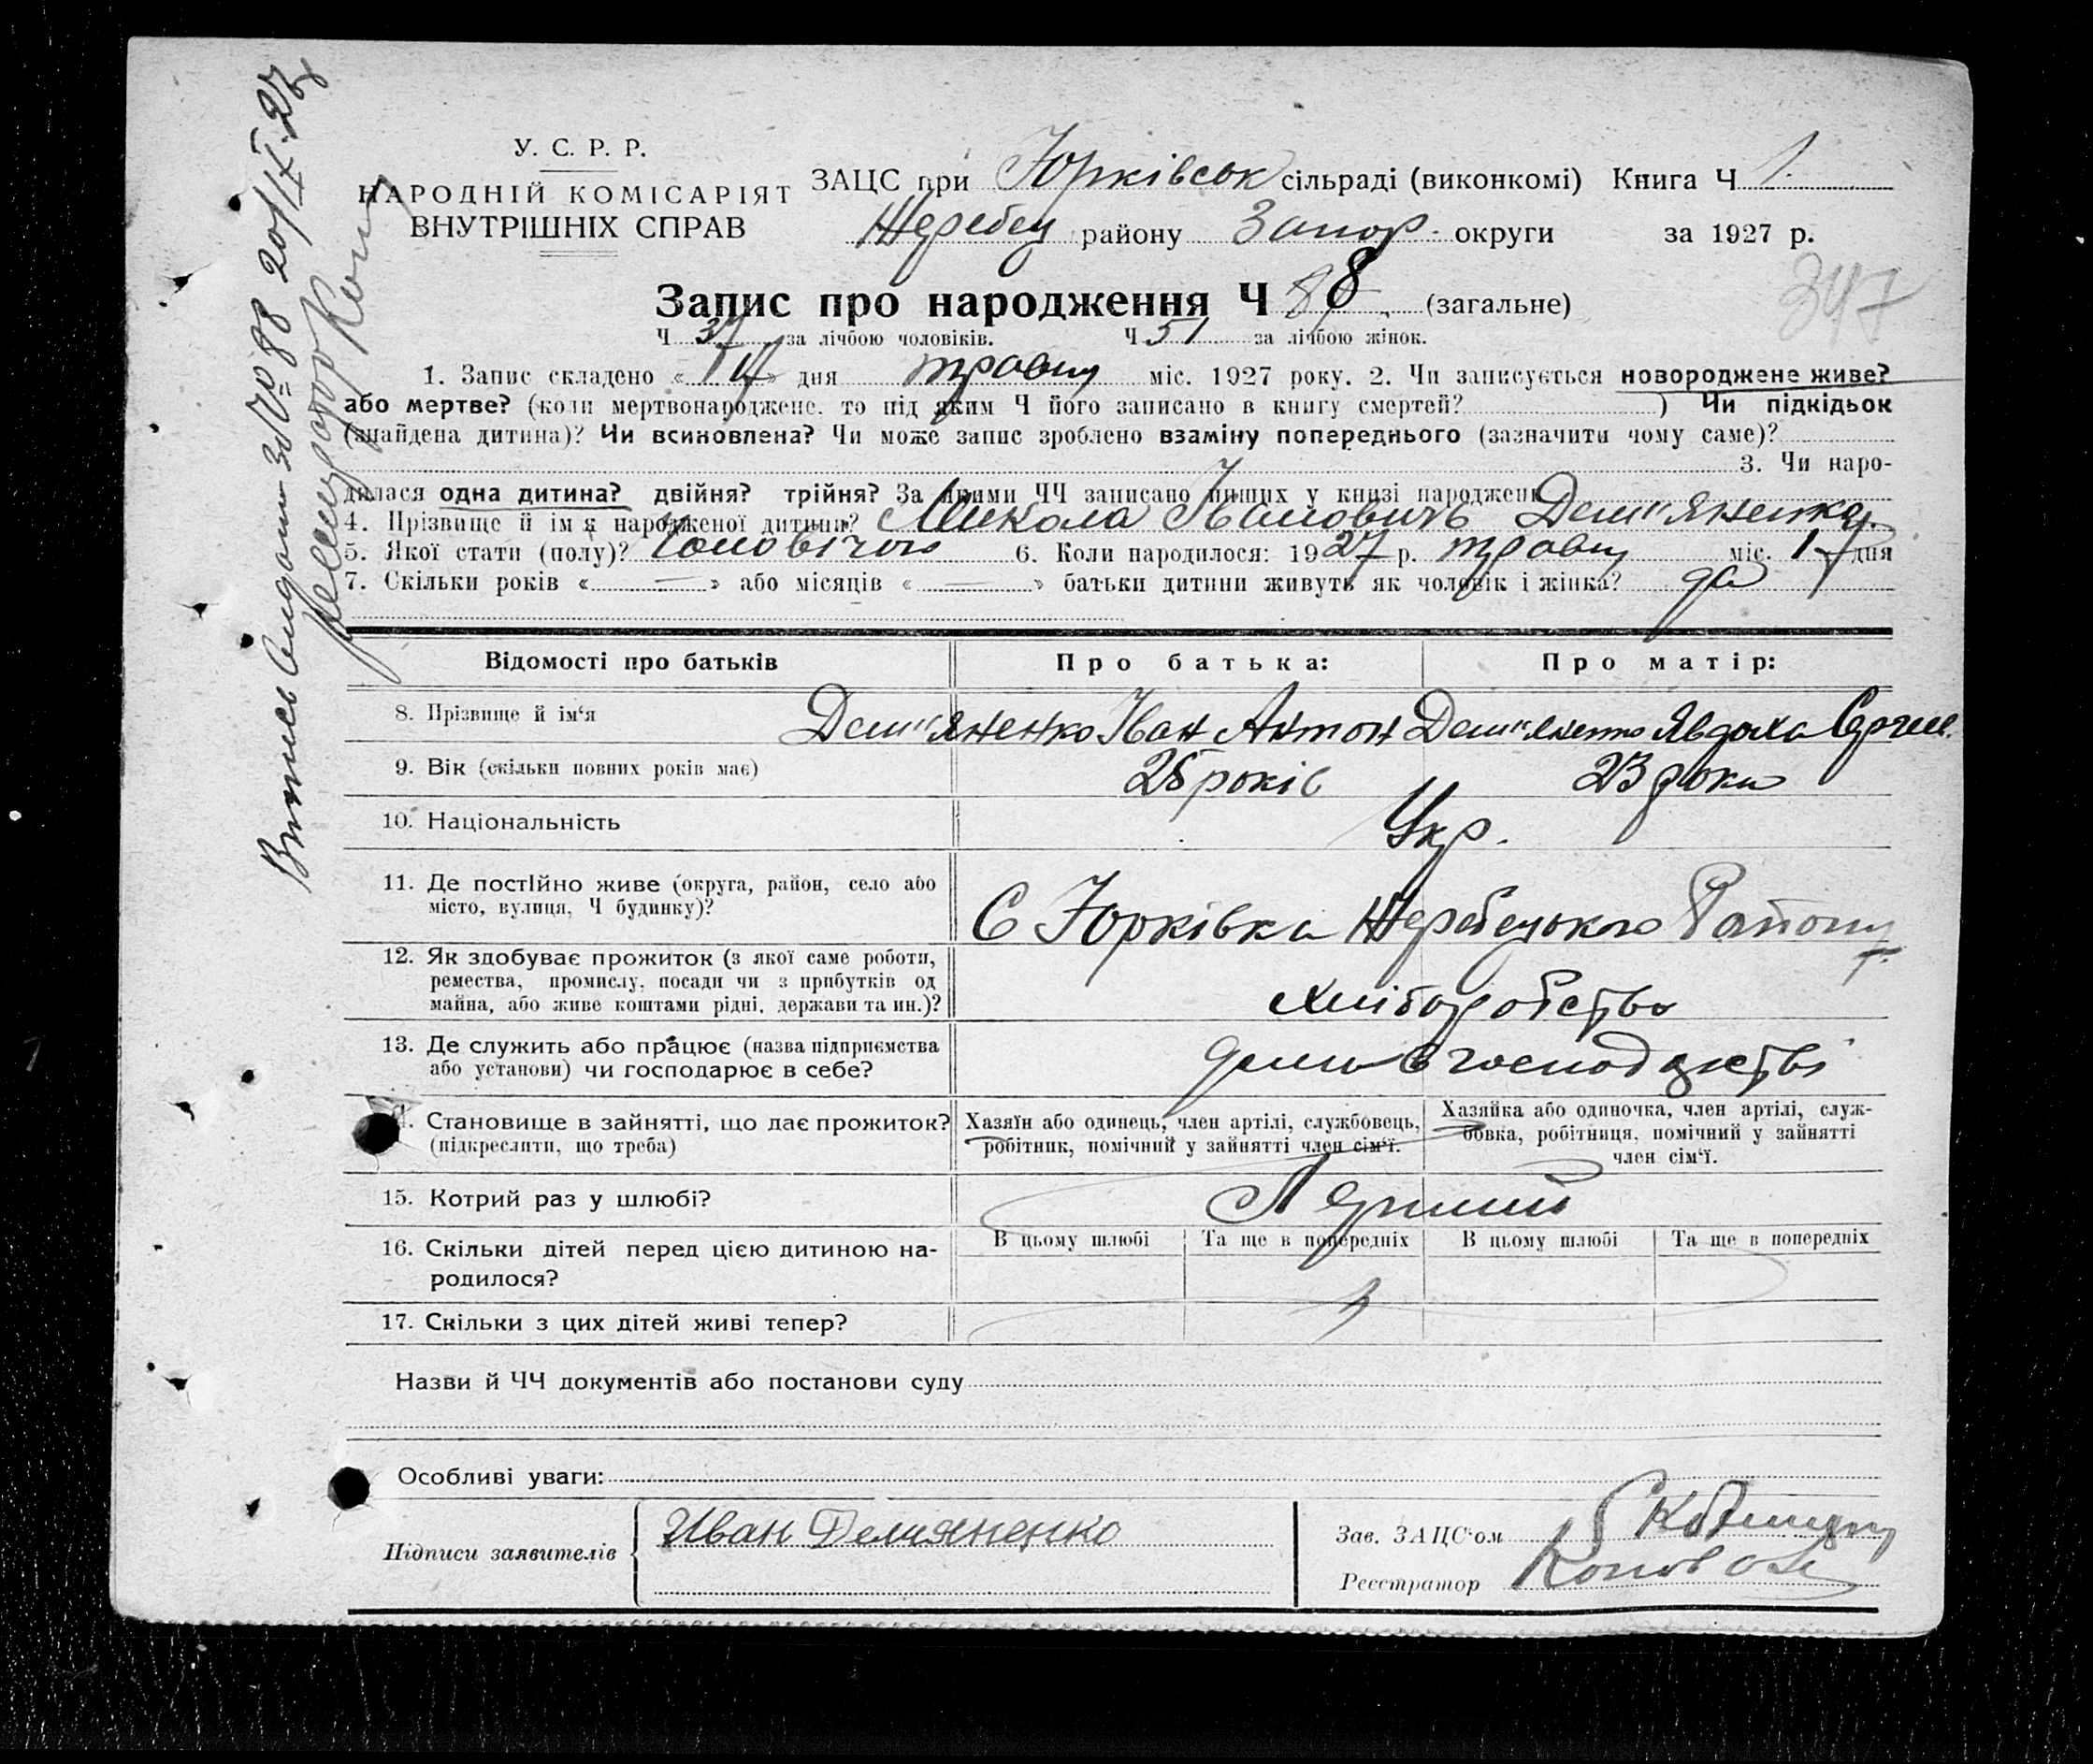 У. С. Р. Р.
НАРОДНІЙ КОМІСАРІЯТ
ВНУТРІШНІХ СПРАВ
ЗАЦС при Юрківськ сільраді (виконкомі) Книга Ч 1.
Жеребец району Запор. округи за 1927 р.
347
Запис про народження Ч 88 (загальне)
Ч 37 за лічбою чоловіків. Ч 51 за лічбою жінок.
1. Запис складено « » дня травня міс. 1927 року. 2. Чи записується новороджене живе?
або мертве? (коли мертвонароджене. то під яким Ч його записано в книгу смертей? ) Чи підкідьок
(знайдена дитина)? Чи всиновлена? Чи може запис зроблено взаміну попереднього (зазначити чому саме)?
3. Чи наро-
дилася одна дитина? двійня? трійня? За якими ЧЧ записано инших у книзі народжень
4. Прізвище й ім'я народженої дитини? Микола Іванович Дем"яненко.
5. Якої стати (полу)? Чоловічої 6. Коли народилося: 1927 р. травня міс. 17 дня
7. Скільки років « — » або місяців « — » батьки дитини живуть як чоловік і жінка? да
Відомості про батьків Про батька: Про матір:
8. Прізвище й ім'я Дем"яненко Іван Антон Дем"яненко Явдоха Сергіев.
9. Вік (скільки повних років має) 25 років 23 роки
10. Національність Укр.
11. Де постійно живе (округа, район, село або
місто, вулиця, Ч будинку)? С Юрківка Жеребецького Району
12. Як здобуває прожиток (з якої саме роботи,
ремества, промислу, посади чи з прибутків од
майна, або живе коштами рідні, держави та ин.)? хліборобство
13. Де служить або працює (назва підприємства
або установи) чи господарює в себе? господарстві
Становище в зайнятті, що дає прожиток?
(підкреслити, що треба)
Хазяїн або одинець, член артілі, службовець,
робітник, помічний у зайнятті член сім'ї.
Хазяйка або одиночка, член артілі, служ-
бовка, робітниця, помічний у зайнятті
член сім'ї.
15. Котрий раз у шлюбі? Перший
16. Скільки дітей перед цією дитиною на-
родилося?
В цьому шлюбі Та ще в попередніх В цьому шлюбі Та ще в попередніх
17. Скільки з цих дітей живі тепер?
Назви й ЧЧ документів або постанови суду
Особливі уваги:
Підписи заявителів Иван Демяненко
Зав. ЗАЦС'ом
Реєстратор
Витись видан за № 88 20/IX-27